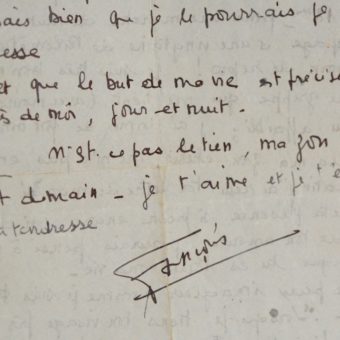 ais bien que je le pourrais je
esse
et que le but de ma vie est précisé
s de moi, jour et nuit.
N'est-ce pas le tien, ma
demain - je t'aime et je t'e
tendresse
François